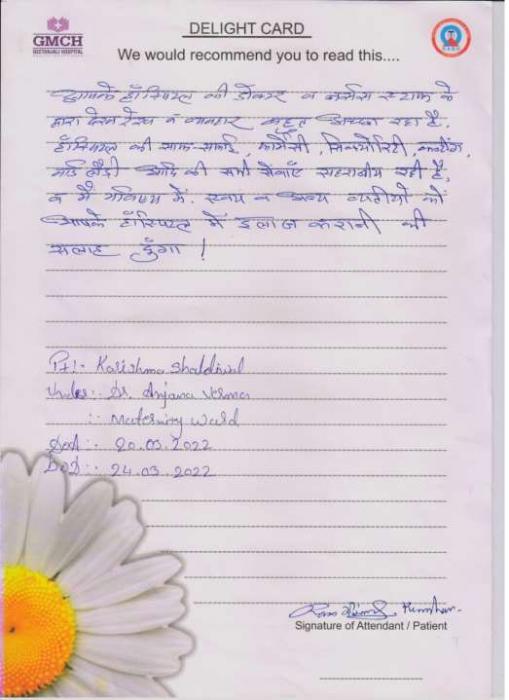 GMCH
GEETANJALI HOSPITAL
DELIGHT CARD
We would recommend you to read this....
आपके हॉस्पिटल की डॉक्टर व नर्सेस स्टाफ के
द्वारा देख रेख व व्यवहार बहुत अच्छा रहा है,
हॉस्पिटल की साफ-सफाई, फार्मेसी, सिक्योरिटी,
आदि की सभी सेवाएँ सहरानीय रही है,
व मैं भविष्य में, स्वयं व अन्य व्यक्तियों को
आपके हॉस्पिटल में इलाज करानी की
सलाह दूँगा !
Pt:- Karishma
Under:- Dr. Anjana Verma
:- Maternity Ward
20.03.2022
DOD:- 24.03.2022
Signature of Attendant / Patient